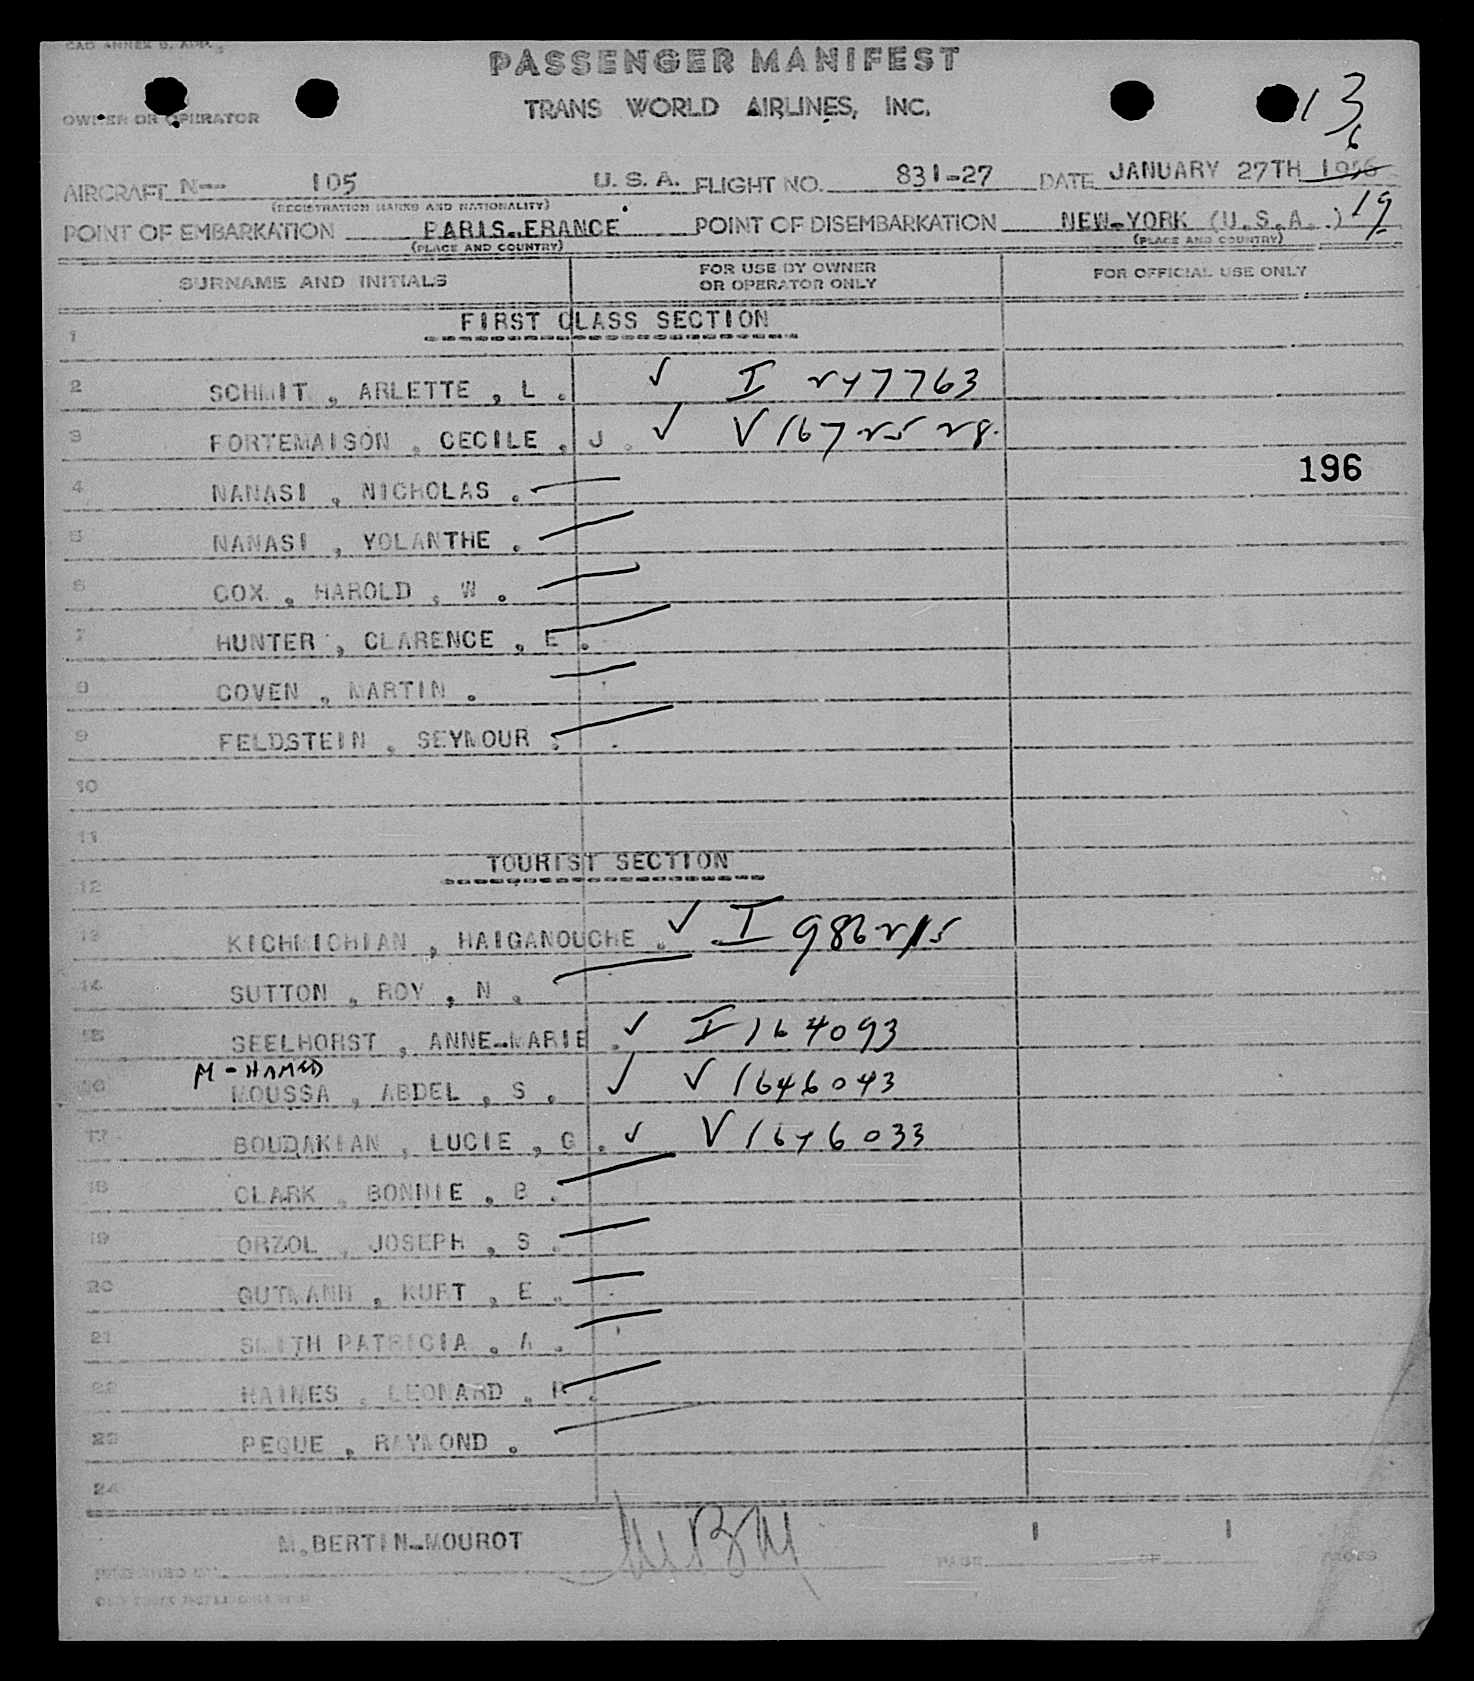 PASSENGER MANIFEST
TRANS WORLD AIRLINES, INC.
OWNER OR OPERATOR
13
6
AIRCRAFT N-- 105 U. S. A. FLIGHT NO. 831-27 DATE JANUARY 27TH
(REGISTRATION MARKS AND NATIONALITY)
19
POINT OF EMBARKATION PARIS-FRANCE POINT OF DISEMBARKATION NEW-YORK (U.S.A.)
(PLACE AND COUNTRY) (PLACE AND COUNTRY)
SURNAME AND INITIALS FOR USE BY OWNER OR OPERATOR ONLY FOR OFFICIAL USE ONLY
1 FIRST CLASS SECTION
2 SCHMIT , ARLETTE , L . ✓ I 247763
3 FORTEMAISON , CECILE , J . ✓ V 1672528.
196
4 NANASI , NICHOLAS .
5 NANASI , YOLANTHE .
6 COX , HAROLD , W .
7 HUNTER , CLARENCE , E .
8 COVEN , MARTIN .
9 FELDSTEIN , SEYMOUR .
10
11
TOURIST SECTION
12
13 KICHMICHIAN , HAIGANOUCHE . ✓ I
14 SUTTON , ROY , N .
15 SEELHORST , ANNE-MARIE . ✓ I 164093
M-HAMED
16 MOUSSA , ABDEL , S . ✓ V 1646043
17 BOUDAKIAN , LUCIE , G . ✓ V 1646033
18 CLARK , BONNIE , B .
19 ORZOL , JOSEPH , S .
20 GUTMANN , KURT , E .
21 SMITH PATRICIA , A .
22 HAINES , LEONARD , R .
23 PEQUE , RAYMOND .
24
M.BERTIN-MOUROT
PREPARED BY PAGE 1 OF 1 PAGES